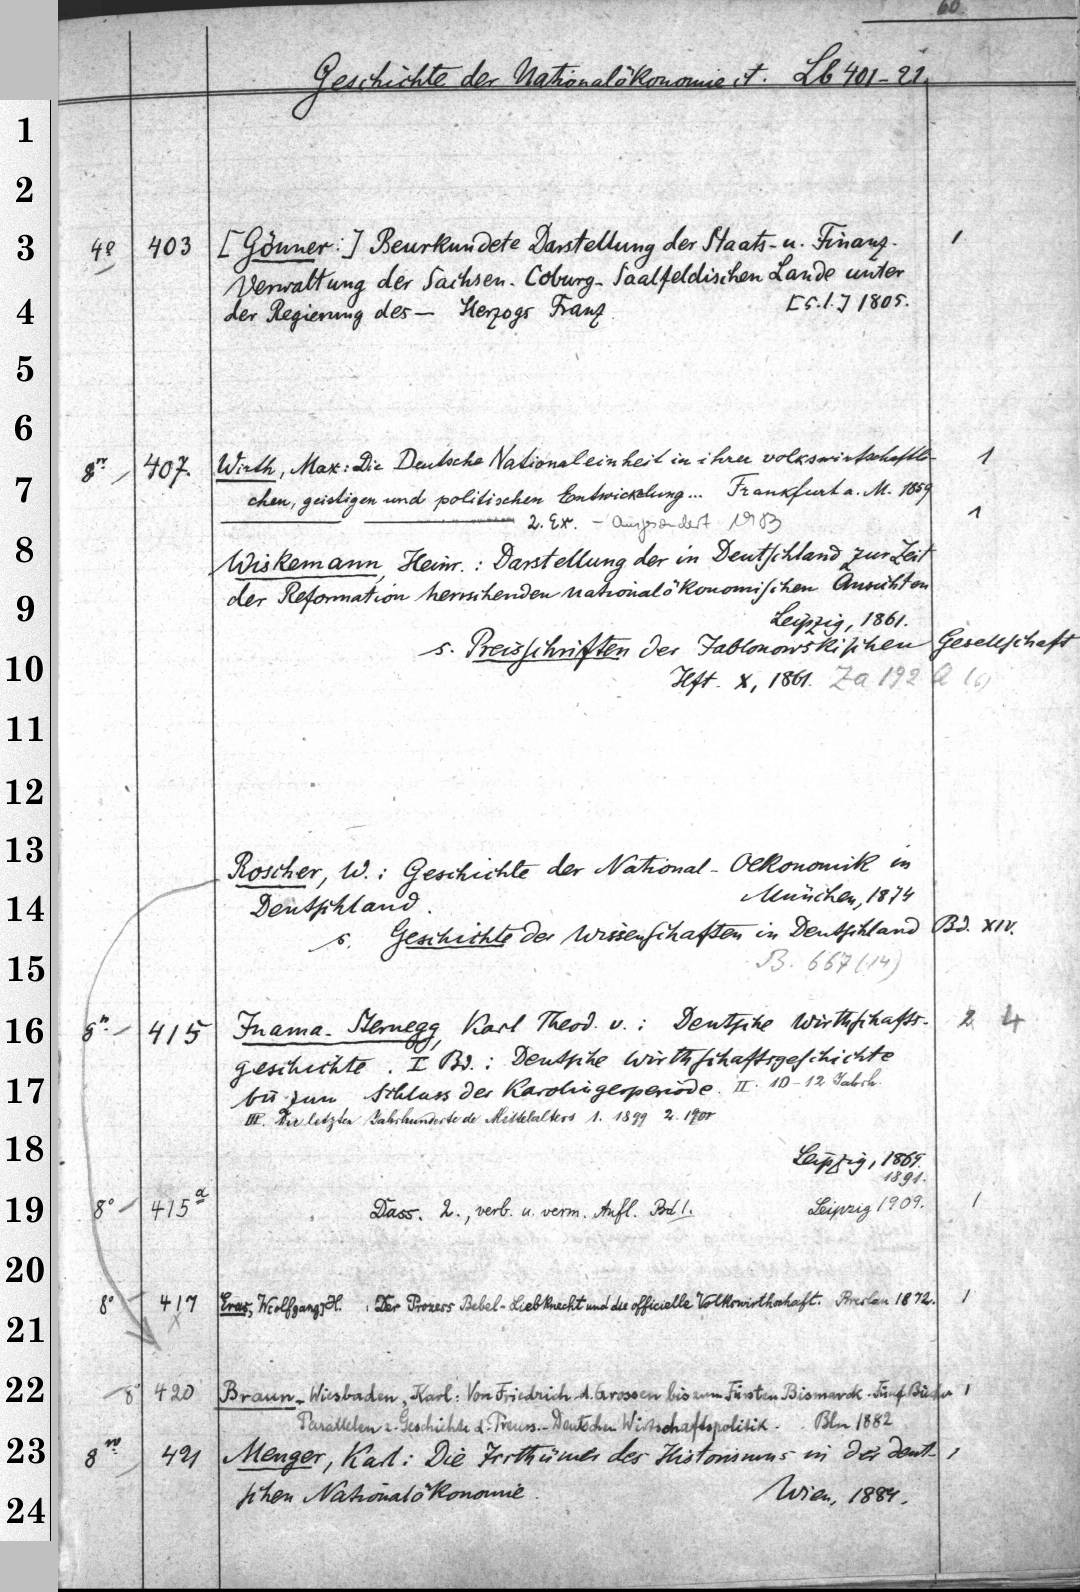 60.
Geschichte der Nationalökonomie
Lb 401-22.
1
2
3 4º 403 [Gönner:] Beurkundete Darstellung der Staats- u. Finanz- 1
Verwaltung der Sachsen-Coburg-Saalfeldischen Lande unter
4 der Regierung des — Herzogs Franz [S.l.] 1805.
5
6
8º 407. Wirth, Max: Die Deutsche Nationaleinheit in ihrer volkswirtschaftli- 1
7 chen, geistigen und politischen Entwickelung... Frankfurt a. M. 1859
2. Ex. - ausgesondert 1983 1
8 Wiskemann, Heinr.: Darstellung der in Deutschland zur Zeit
9 der Reformation herrschenden nationalökonomischen Ansichten
Leipzig, 1861.
s. Preisschriften der Jablonowskischen Gesellschaft
10 Hft. X, 1861. Za 192 a (6)
11
12
13 Roscher, W.: Geschichte der National-Oekonomik in
14 Deutschland. München, 1874
s. Geschichte der Wissenschaften in Deutschland Bd. XIV.
15 B. 667 (14)
16 8º 415 Inama-Sternegg, Karl Theod. v.: Deutsche Wirthschafts- 2 4
geschichte. I Bd.: Deutsche Wirthschaftsgeschichte
17 bis zum Schluss der Karolingerperiode. II. 10-12 Jahrh.
III. Die letzten Jahrhunderte de Mittelalters 1. 1899 2. 1901
18 Leipzig,
1891.
19 8º 415a Dass. 2., verb. u. verm. Aufl. Bd 1. Leipzig 1909. 1
20
8º 417 Eras, Wolfgang H.: Der Prozess Bebel-Liebknecht und die officielle Volkswirthschaft. Breslau 1872. 1
21
22 8º 420 Braun-Wiesbaden, Karl: Von Friedrich d. Grossen bis zum Fürsten Bismarck. Fünf Bücher 1
Parallelen z. Geschichte d. Preuss.-Deutschen Wirtschaftspolitik. Bln 1882
23 8º 421 Menger, Karl: Die Irrthümer des Historismus in der deut- 1
24 schen Nationalökonomie. Wien, 1884.